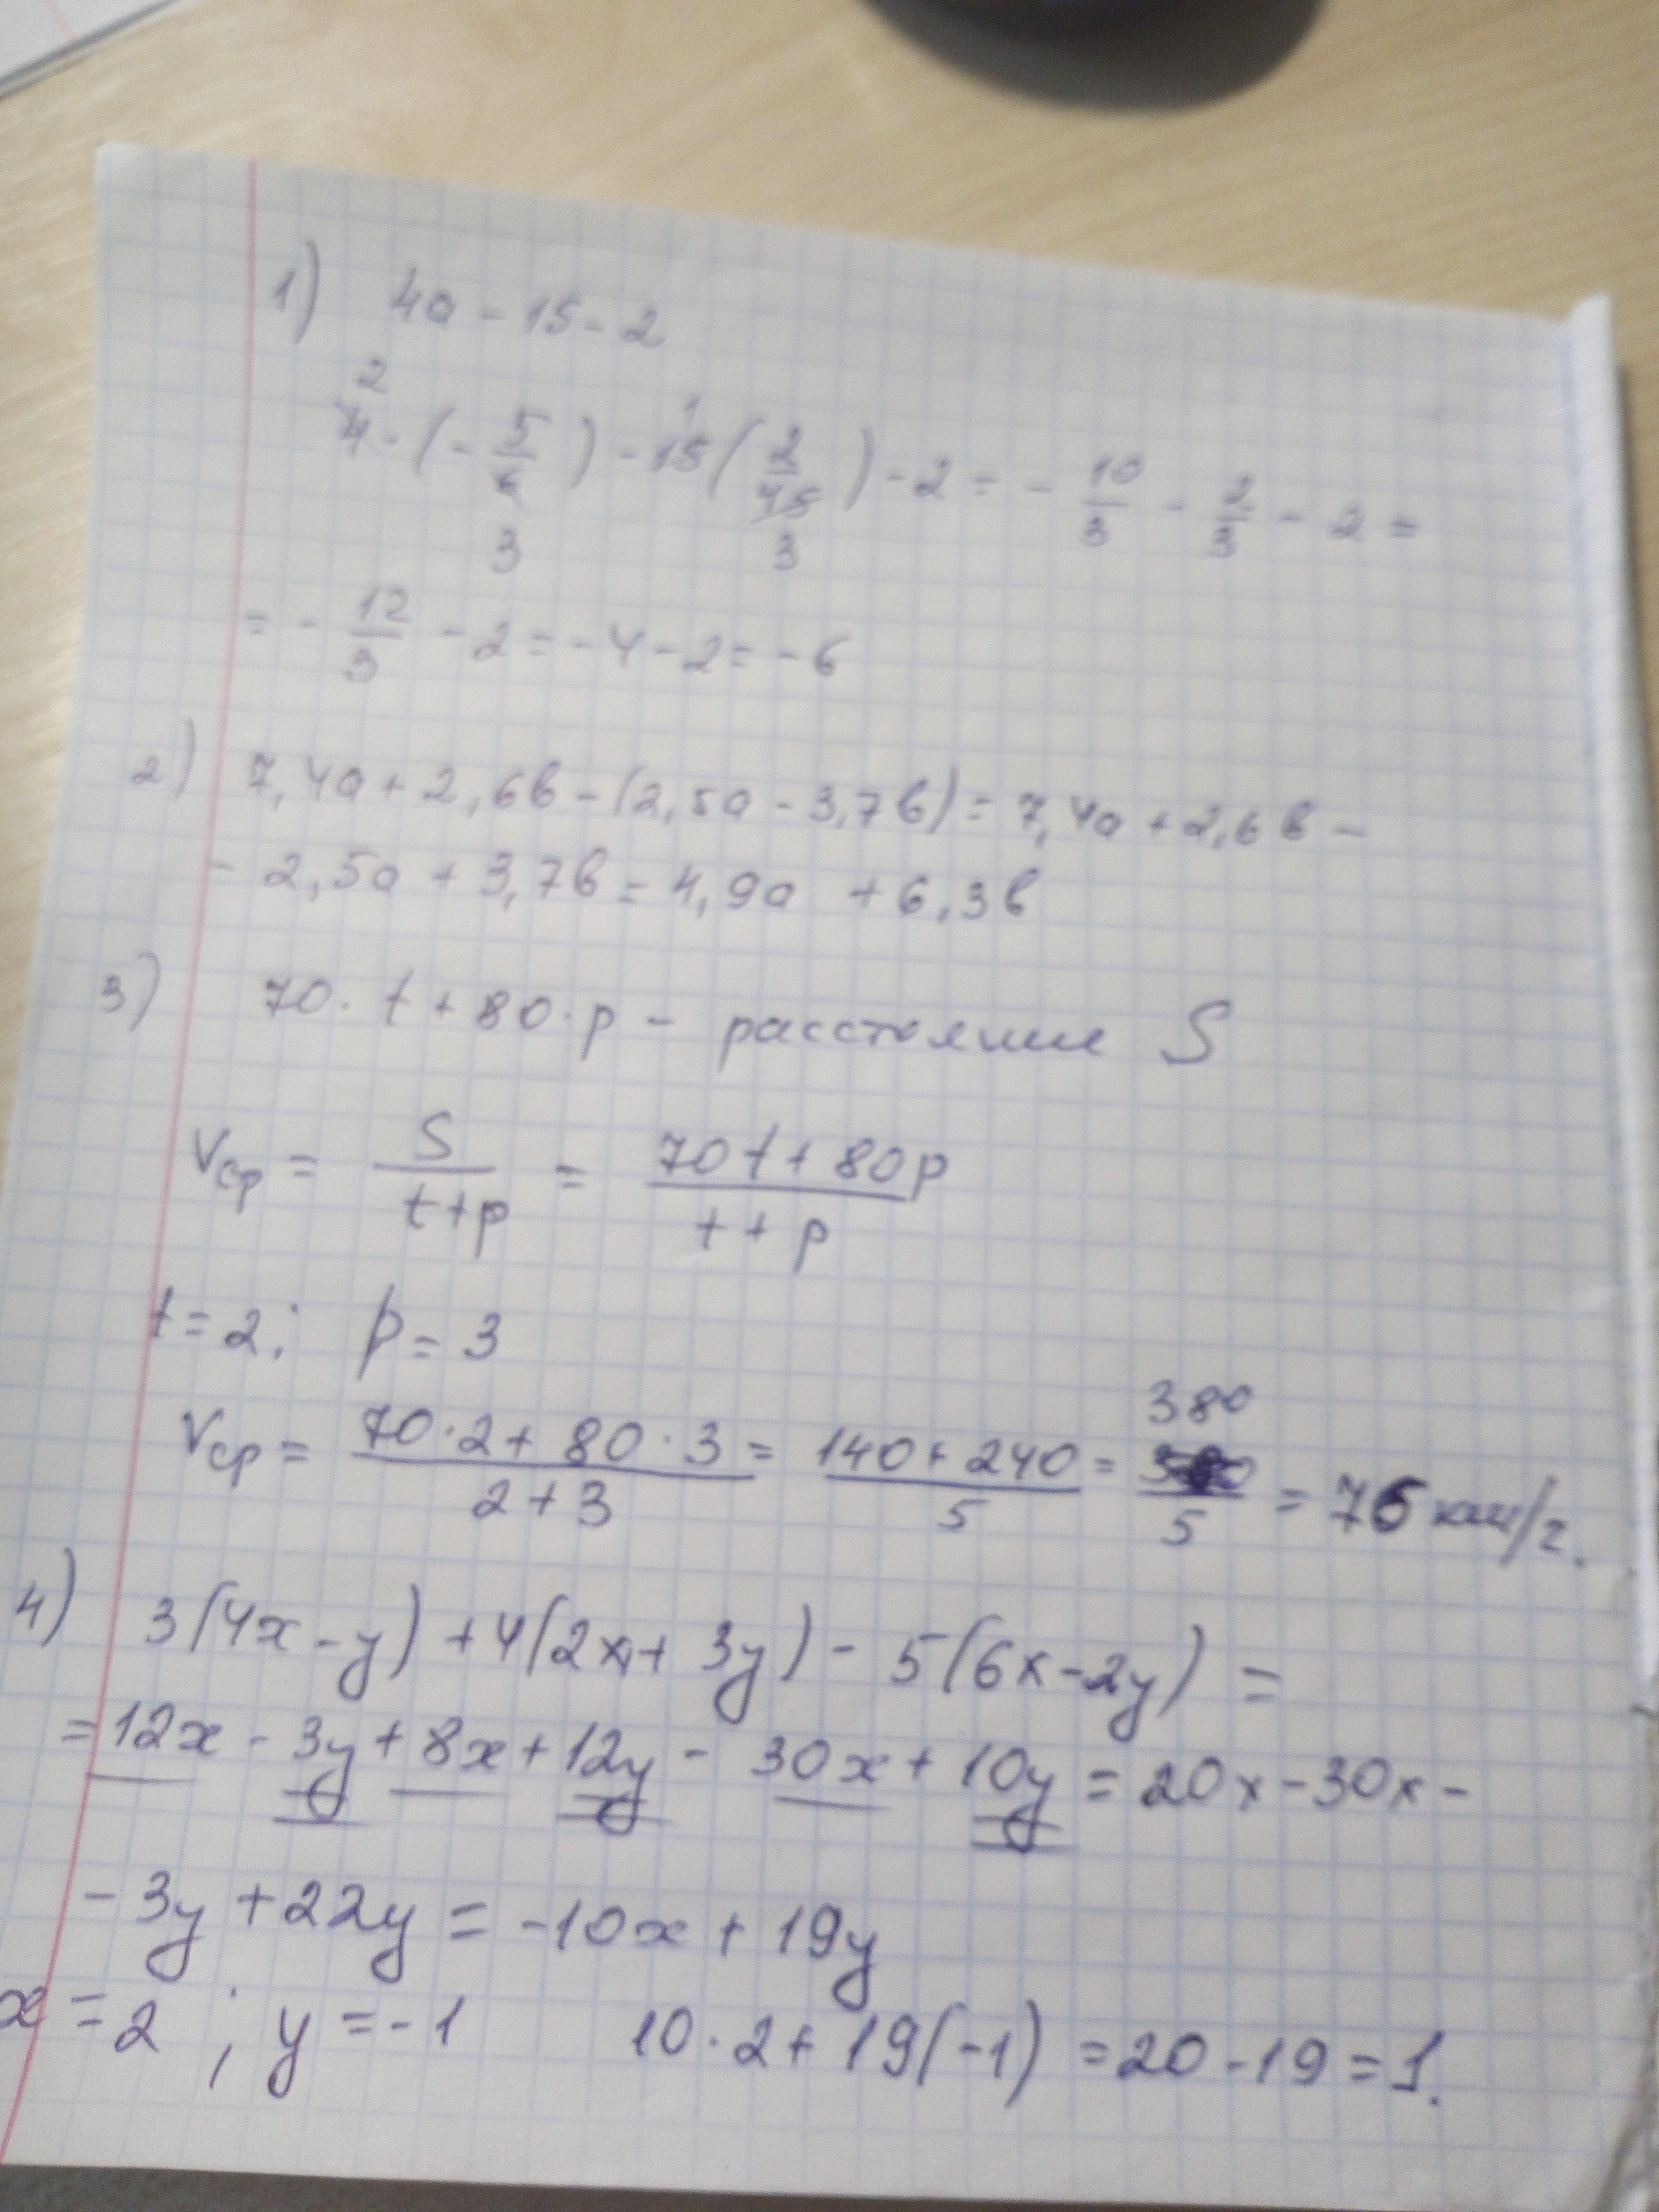 1) 4a - 15 - 2
4 · (- 5/6) - 15 (2/45) - 2 = - 10/3 - 2/3 - 2 =
= - 12/3 - 2 = - 4 - 2 = - 6
2) 7,4a + 2,6в - (2,5a - 3,7в) = 7,4a + 2,6в -
- 2,5a + 3,7в = 4,9a + 6,3в
3) 70 · t + 80 · p - расстояние S
Vср = S/(t+p) = (70t + 80p)/(t + p)
t = 2; p = 3
Vср = (70·2 + 80·3)/(2+3) = (140 + 240)/5 = 380/5 = 76 км/г.
4) 3(4x - y) + 4(2x + 3y) - 5(6x - 2y) =
= 12x - 3y + 8x + 12y - 30x + 10y = 20x - 30x -
- 3y + 22y = -10x + 19y
x = 2 ; y = -1 10·2 + 19(-1) = 20 - 19 = 1.